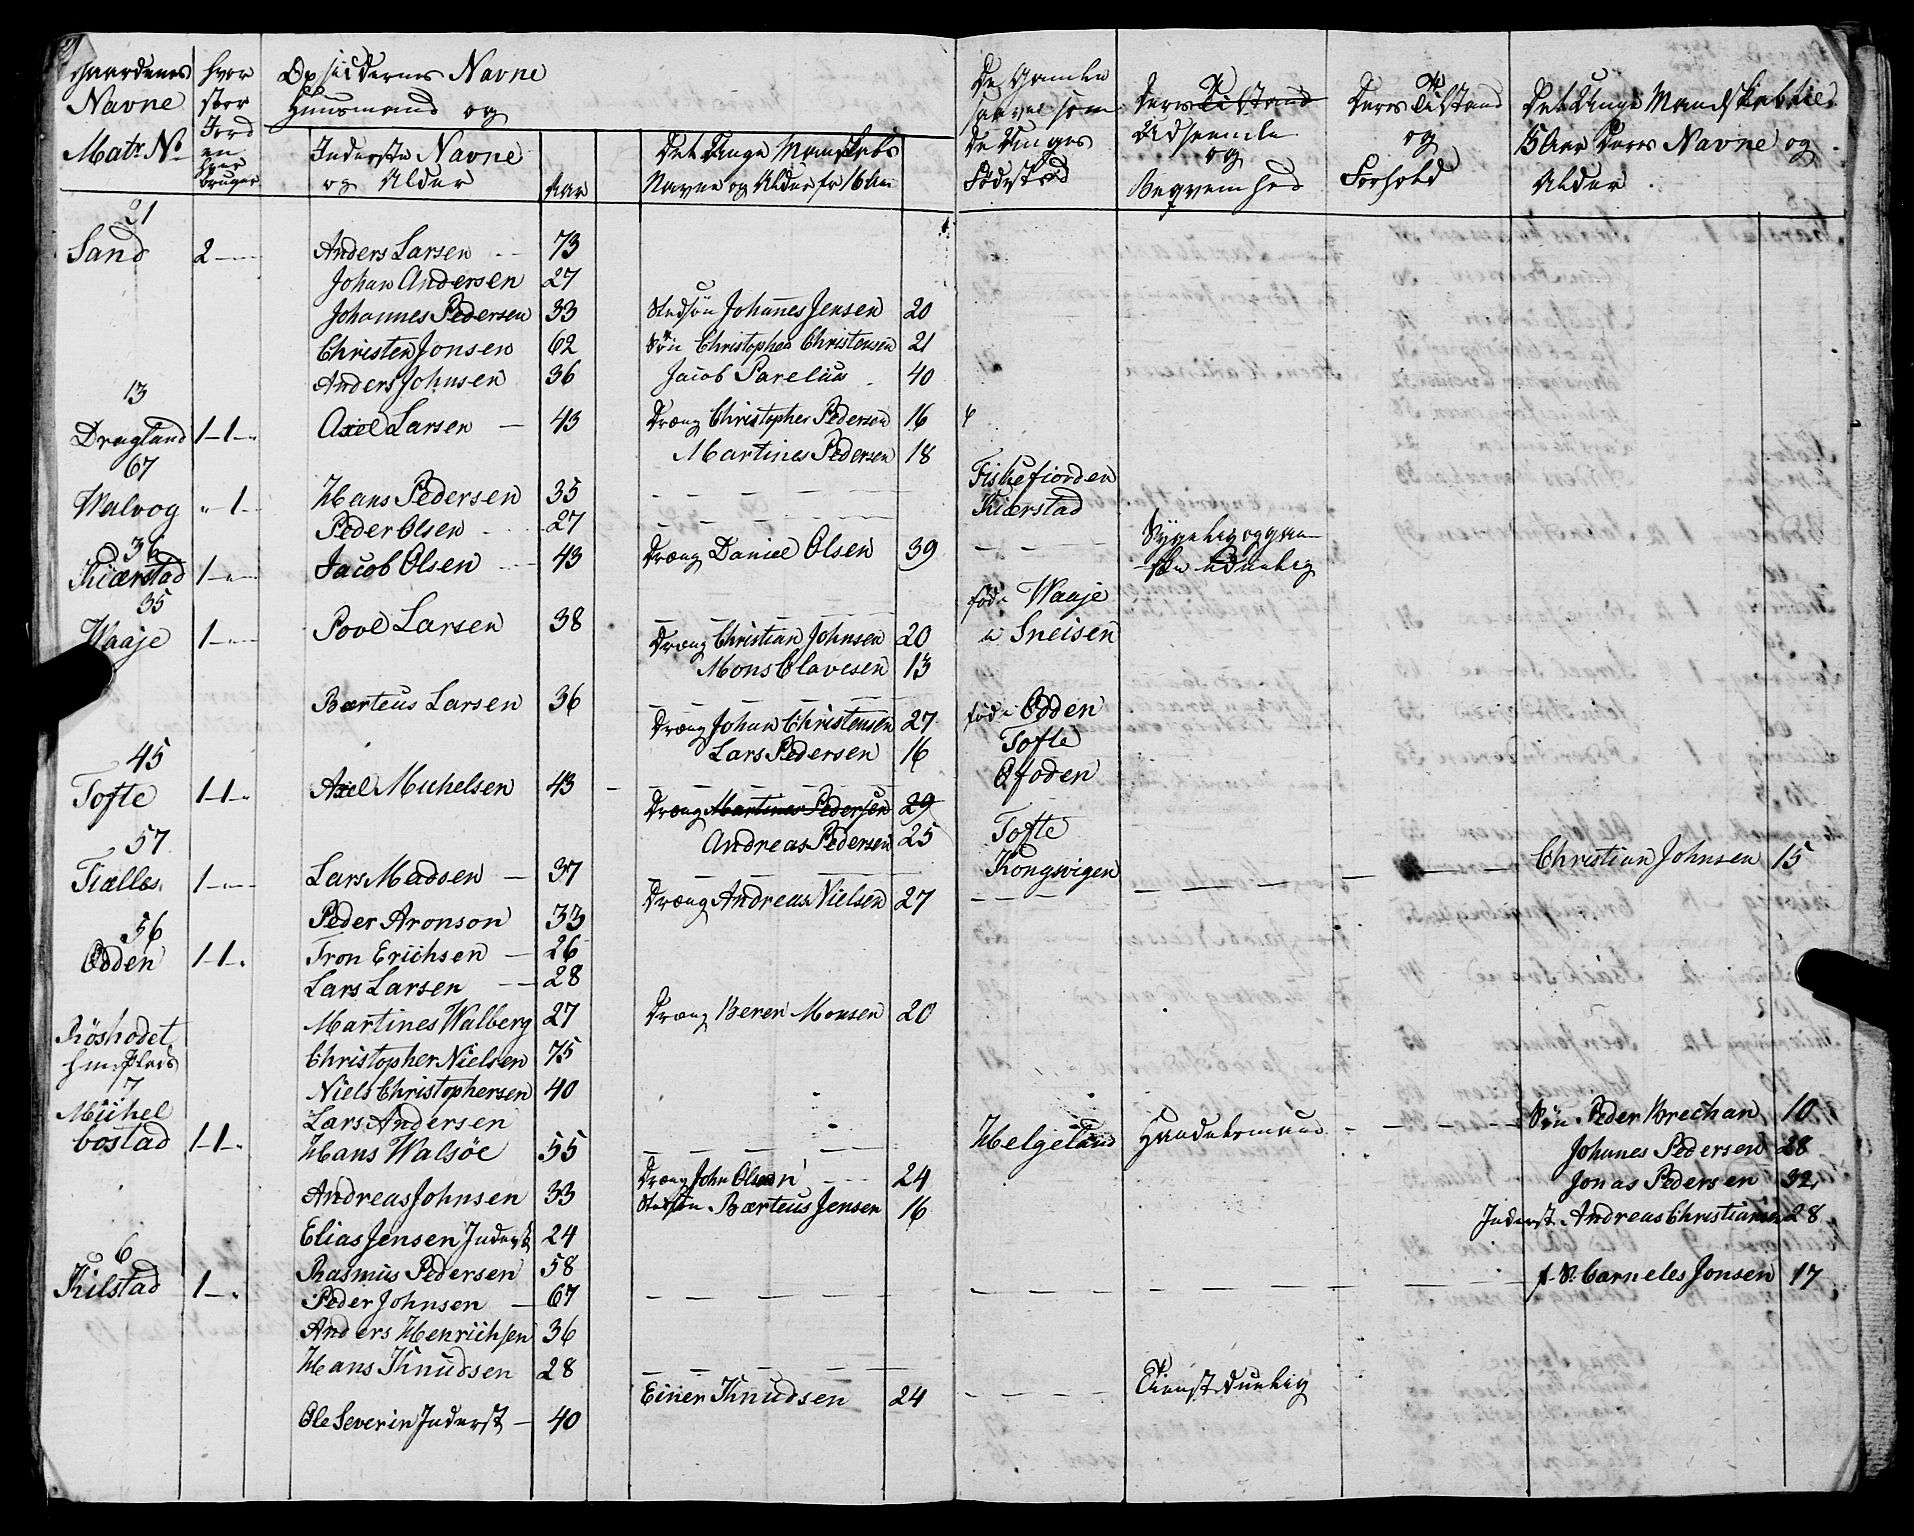 Gaardenes Navne Matr. No
hvor stor Jord en hver bruger
Opsiddernes Navne
Huusmænd og
Inderste Navne og Alder
Aar
Det Unge Mandskabs
Navne og Alder fr 16 Aar
De Gamle saavel som De Unges Fødested
Deres Tilstand Udseende og Beqvemhed
Deres Tilstand og Forhold
Det Unge Mandskab til 15 Aar Deres Navne og Alder
21
Sand 2 Anders Larsen 73
Johan Andersen 27
Johannes Pedersen 33 Stedsøn Johannes Jensen 20
Christen Jonsen 62 Søn Christopher Christensen 21
Anders Johnsen 36 Jacob Parelius 40
13
Dragland 1-1- Axel Larsen 43 Dræng Christopher Pedersen 16
Martines Pedersen 18
67
Walvog " 1 Hans Pedersen 35 Fiskefiorden
Peder Olsen 27 Kiærstad
36
Kiærstad 1 Jacob Olsen 43 Dræng Daniel Olsen 39 Sygelig og gan-
ske uduelig
35
Waaje 1 Povel Larsen 38 fød i Waaje
Dræng Christian Johnsen 20 u Sneisen
Mons Olavesen 13
Bærteus Larsen 36 fød i Odden
Dræng Johan Christensen 27
Lars Pedersen 16 Tofte
45
Tofte 1-1- Axel Michelsen 43 Ofoden
Dræng Martines Pedersen 29
Andreas Pedersen 25 Tofte
57
Fiælles 1 Lars Madsen 37 Kongsvigen Christian Johnsen 15
Dræng Andreas Nielsen 27
Peder Aronson 33
56
Odden 1-1- Tron Erichsen 26
Lars Larsen 28
Martines Walberg 27 Dræng Berer Monsen 20
Røshodet
Christopher Nielsen 75
Niels Christophersen 40
7
Michel
Lars Andersen Søn Peder Brechan 10
bostad 1-1- Hans Walsøe 55 Helgeland Handelsmand
Johanes Pedersen 28
Dræng John Olsen 24 Jonas Pedersen 32
Andreas Johnsen 33 Stedsøn Bærteus Jensen 16
Inderst Andreas Christiansen 28
Elias Jensen Inderst 24
6
Rasmus Pedersen 58
Kilstad 1 Peder Johnsen 67 Carneles Jonsen 17
Anders Henrichsen 36
Hans Knudsen 28
Einer Knudsen 24 Tienstduelig
Ole Severin Inderst 40